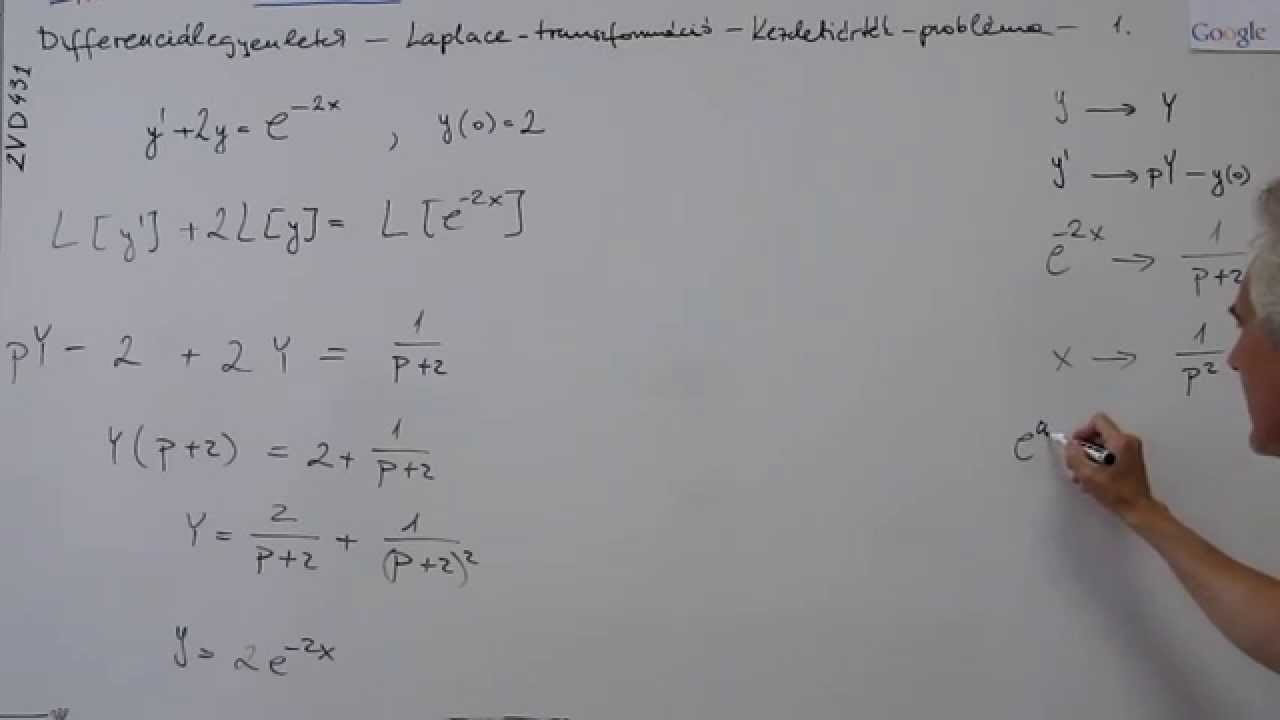 Differenciálegyenletek – Laplace-transzformáció – Kezdetiérték-probléma – 1.
Google
2VD431
y' + 2y = e^{-2x} , y(0) = 2
L[y'] + 2L[y] = L[e^{-2x}]
pY - 2 + 2Y = 1/(p+2)
Y(p+2) = 2 + 1/(p+2)
Y = 2/(p+2) + 1/(p+2)^2
y = 2e^{-2x}
y → Y
y' → pY - y(0)
e^{-2x} → 1/(p+2)
x → 1/p^2
e^a